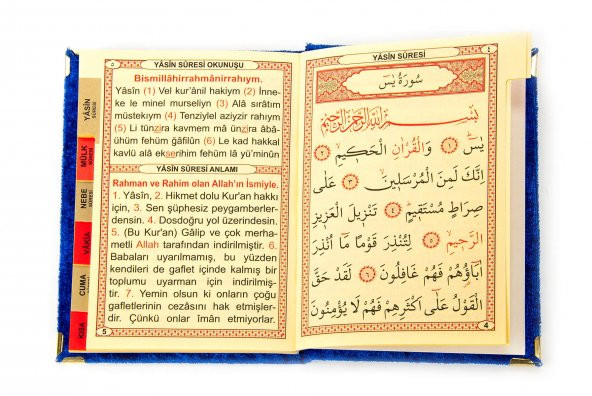 ٥
YÂSÎN SÛRESİ OKUNUŞU
Bismillâhirrahmânirrahıym.
Yâsîn (1) Vel kur'ânil hakiym (2) İnne-
ke le minel murseliyn (3) Alâ sırâtım
müstekıym (4) Tenziylel aziyzir rahıym
(5) Li tünzira kavmem mâ ünzira âbâ-
ühüm fehüm ğâfilûn (6) Le kad hakkal
kavlü alâ ekserihim fehüm lâ yü'minûn
YÂSÎN SÛRESİ ANLAMI
Rahman ve Rahim olan Allah'ın İsmiyle.
1. Yâsîn, 2. Hikmet dolu Kur'an hakkı
için, 3. Sen şüphesiz peygamberler-
densin. 4. Dosdoğru yol üzerindesin.
5. (Bu Kur'an) Gâlip ve çok merha-
metli Allah tarafından indirilmiştir. 6.
Babaları uyarılmamış, bu yüzden
kendileri de gaflet içinde kalmış bir
toplumu uyarman için indirilmiş-
tir. 7. Yemin olsun ki onların çoğu
gafletlerinin cezasını hak etmişler-
dir. Çünkü onlar îmân etmiyorlar.
5
YÂSÎN
SÛRESİ
MÜLK
SÛRESİ
NEBE
SÛRESİ
VÂKIA
CUMA
KISA
YÂSÎN SÛRESİ
٤
سُورَةُ يٰسٓ
بِسْمِ اللّٰهِ الرَّحْمٰنِ الرَّحِيمِ
يٰسٓ ﴿١﴾ وَالْقُرْاٰنِ الْحَكِيمِ ﴿٢﴾
اِنَّكَ لَمِنَ الْمُرْسَلِينَ ﴿٣﴾ عَلٰى
صِرَاطٍ مُسْتَقِيمٍ ﴿٤﴾ تَنْزِيلَ الْعَزِيزِ
الرَّحِيمِ ﴿٥﴾ لِتُنْذِرَ قَوْمًا مَٓا اُنْذِرَ
اٰبَٓاؤُ۬هُمْ فَهُمْ غَافِلُونَ ﴿٦﴾ لَقَدْ حَقَّ
الْقَوْلُ عَلٰٓى اَكْثَرِهِمْ فَهُمْ لَا يُؤْمِنُونَ
4